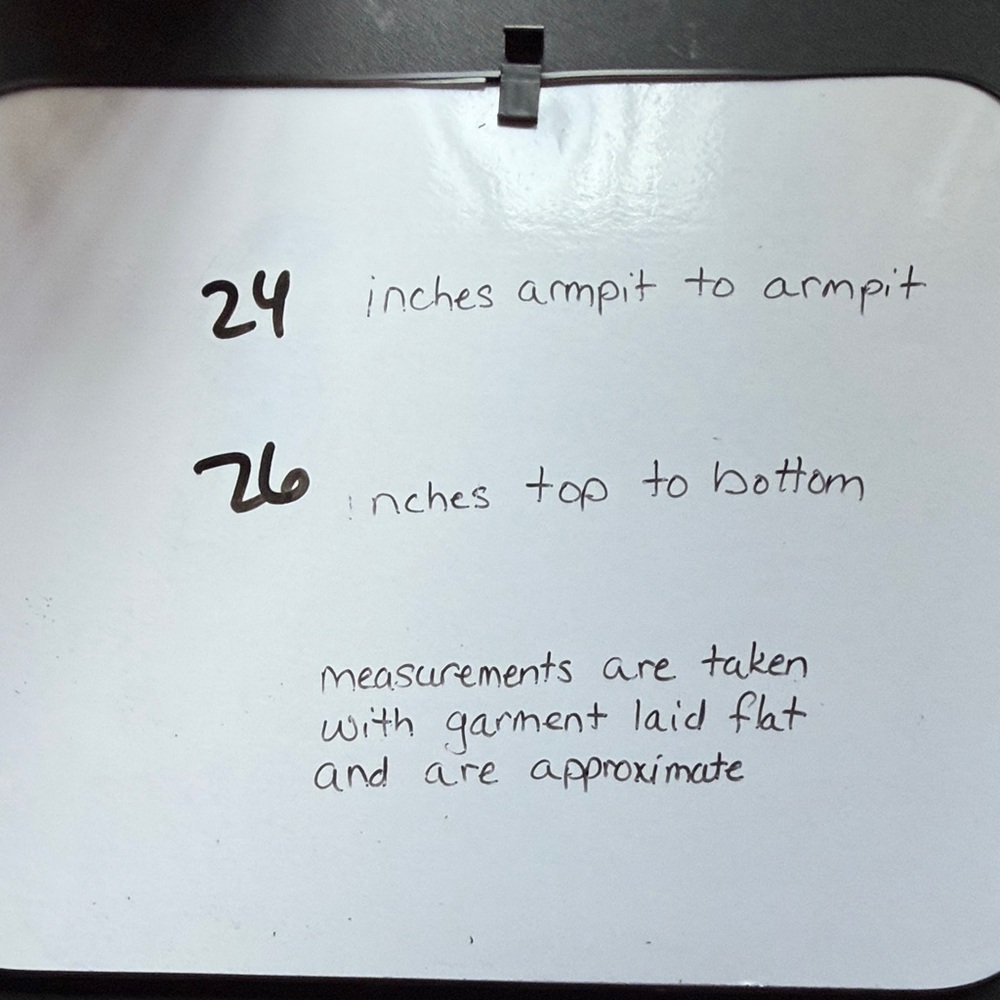 24 inches armpit to armpit
26 inches top to bottom
measurements are taken
with garment laid flat
and are approximate